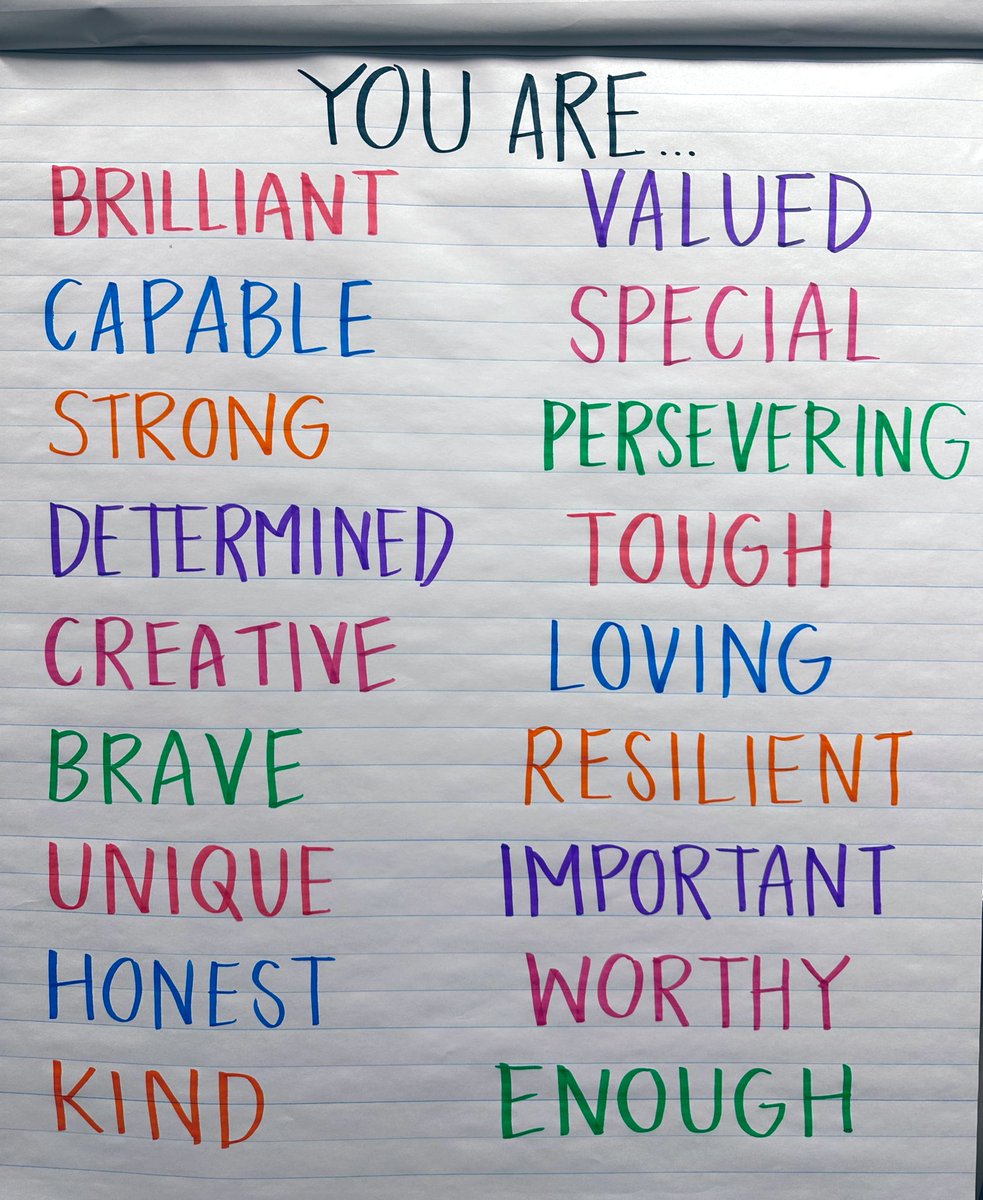 YOU ARE...
BRILLIANT
CAPABLE
STRONG
DETERMINED
CREATIVE
BRAVE
UNIQUE
HONEST
KIND
VALUED
SPECIAL
PERSEVERING
TOUGH
LOVING
RESILIENT
IMPORTANT
WORTHY
ENOUGH